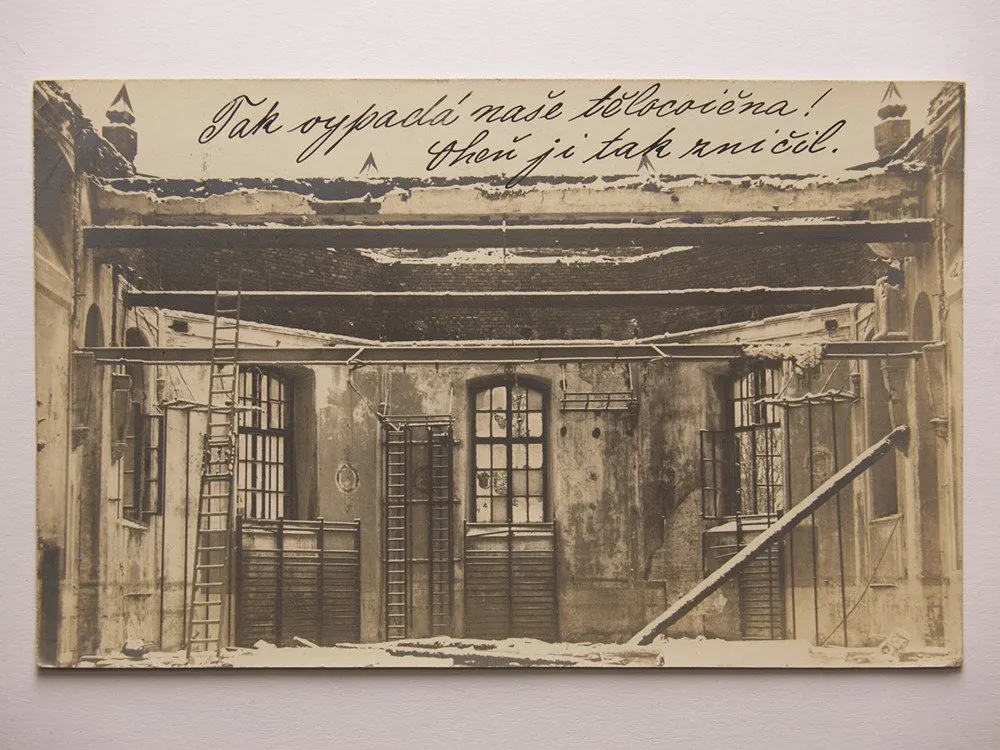 Tak vypadá naše tělocvična!
Oheň ji tak zničil.